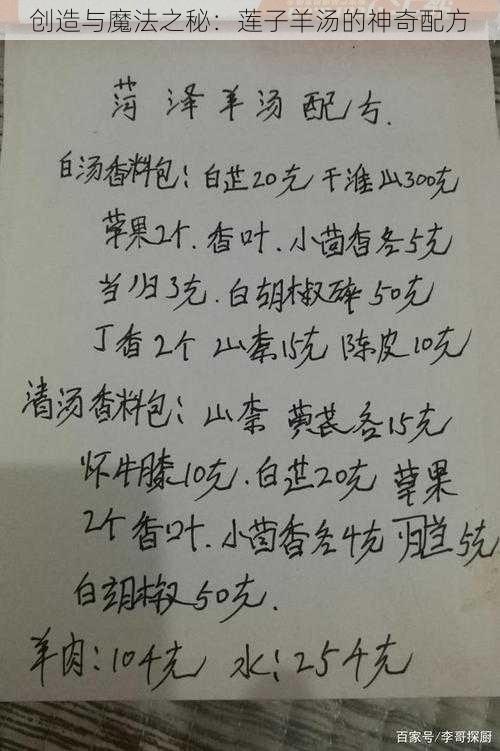 创造与魔法之秘：莲子羊汤的神奇配方
菏泽羊汤配方.
白汤香料包：白芷20克 干淮山300克
草果2个.香叶.小茴香各5克
当归3克.白胡椒碎50克
丁香2个 山柰15克 陈皮10克
清汤香料包：山柰 黄芪各15克
怀牛膝10克.白芷20克 草果
2个香叶.小茴香各4克 5克
白胡椒50克.
羊肉：104克 水：254克
百家号/李哥探厨